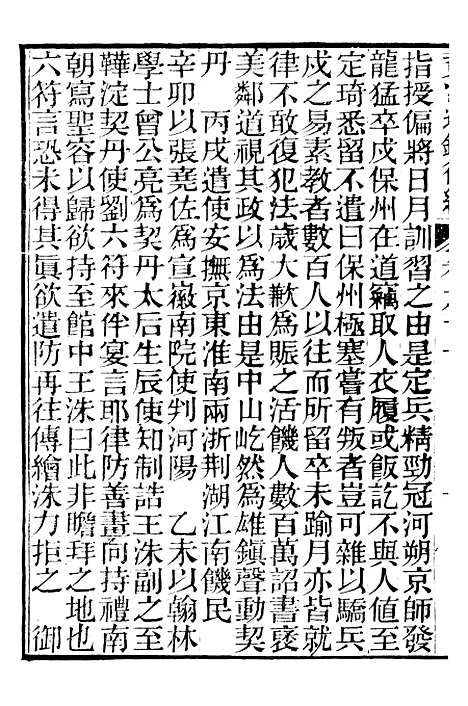 指授偏將日月訓習之由是定兵精勁冠河朔京師發
龍猛卒戍保州在道竊取人衣履或飯訖不與人值至
定琦悉留不遣曰保州極塞嘗有叛者豈可雜以驕兵
戍之易素教者數百人以往而所留卒未踰月亦皆就
律不敢復犯法歲大歉爲賑之活饑人數百萬詔書襃
美鄰道視其政以爲法由是中山屹然爲雄鎮聲動契
丹　丙戌遣使安撫京東淮南兩浙荆湖江南饑民
辛卯以張堯佐爲宣徽南院使判河陽　乙未以翰林
學士曾公亮爲契丹太后生辰使知制誥王洙副之至
鞾淀契丹使劉六符來伴宴言耶律防善畫向持禮南
朝寫聖容以歸欲持至館中王洙曰此非瞻拜之地也
六符言恐未得其眞欲遣防再往傳繪洙力拒之　御